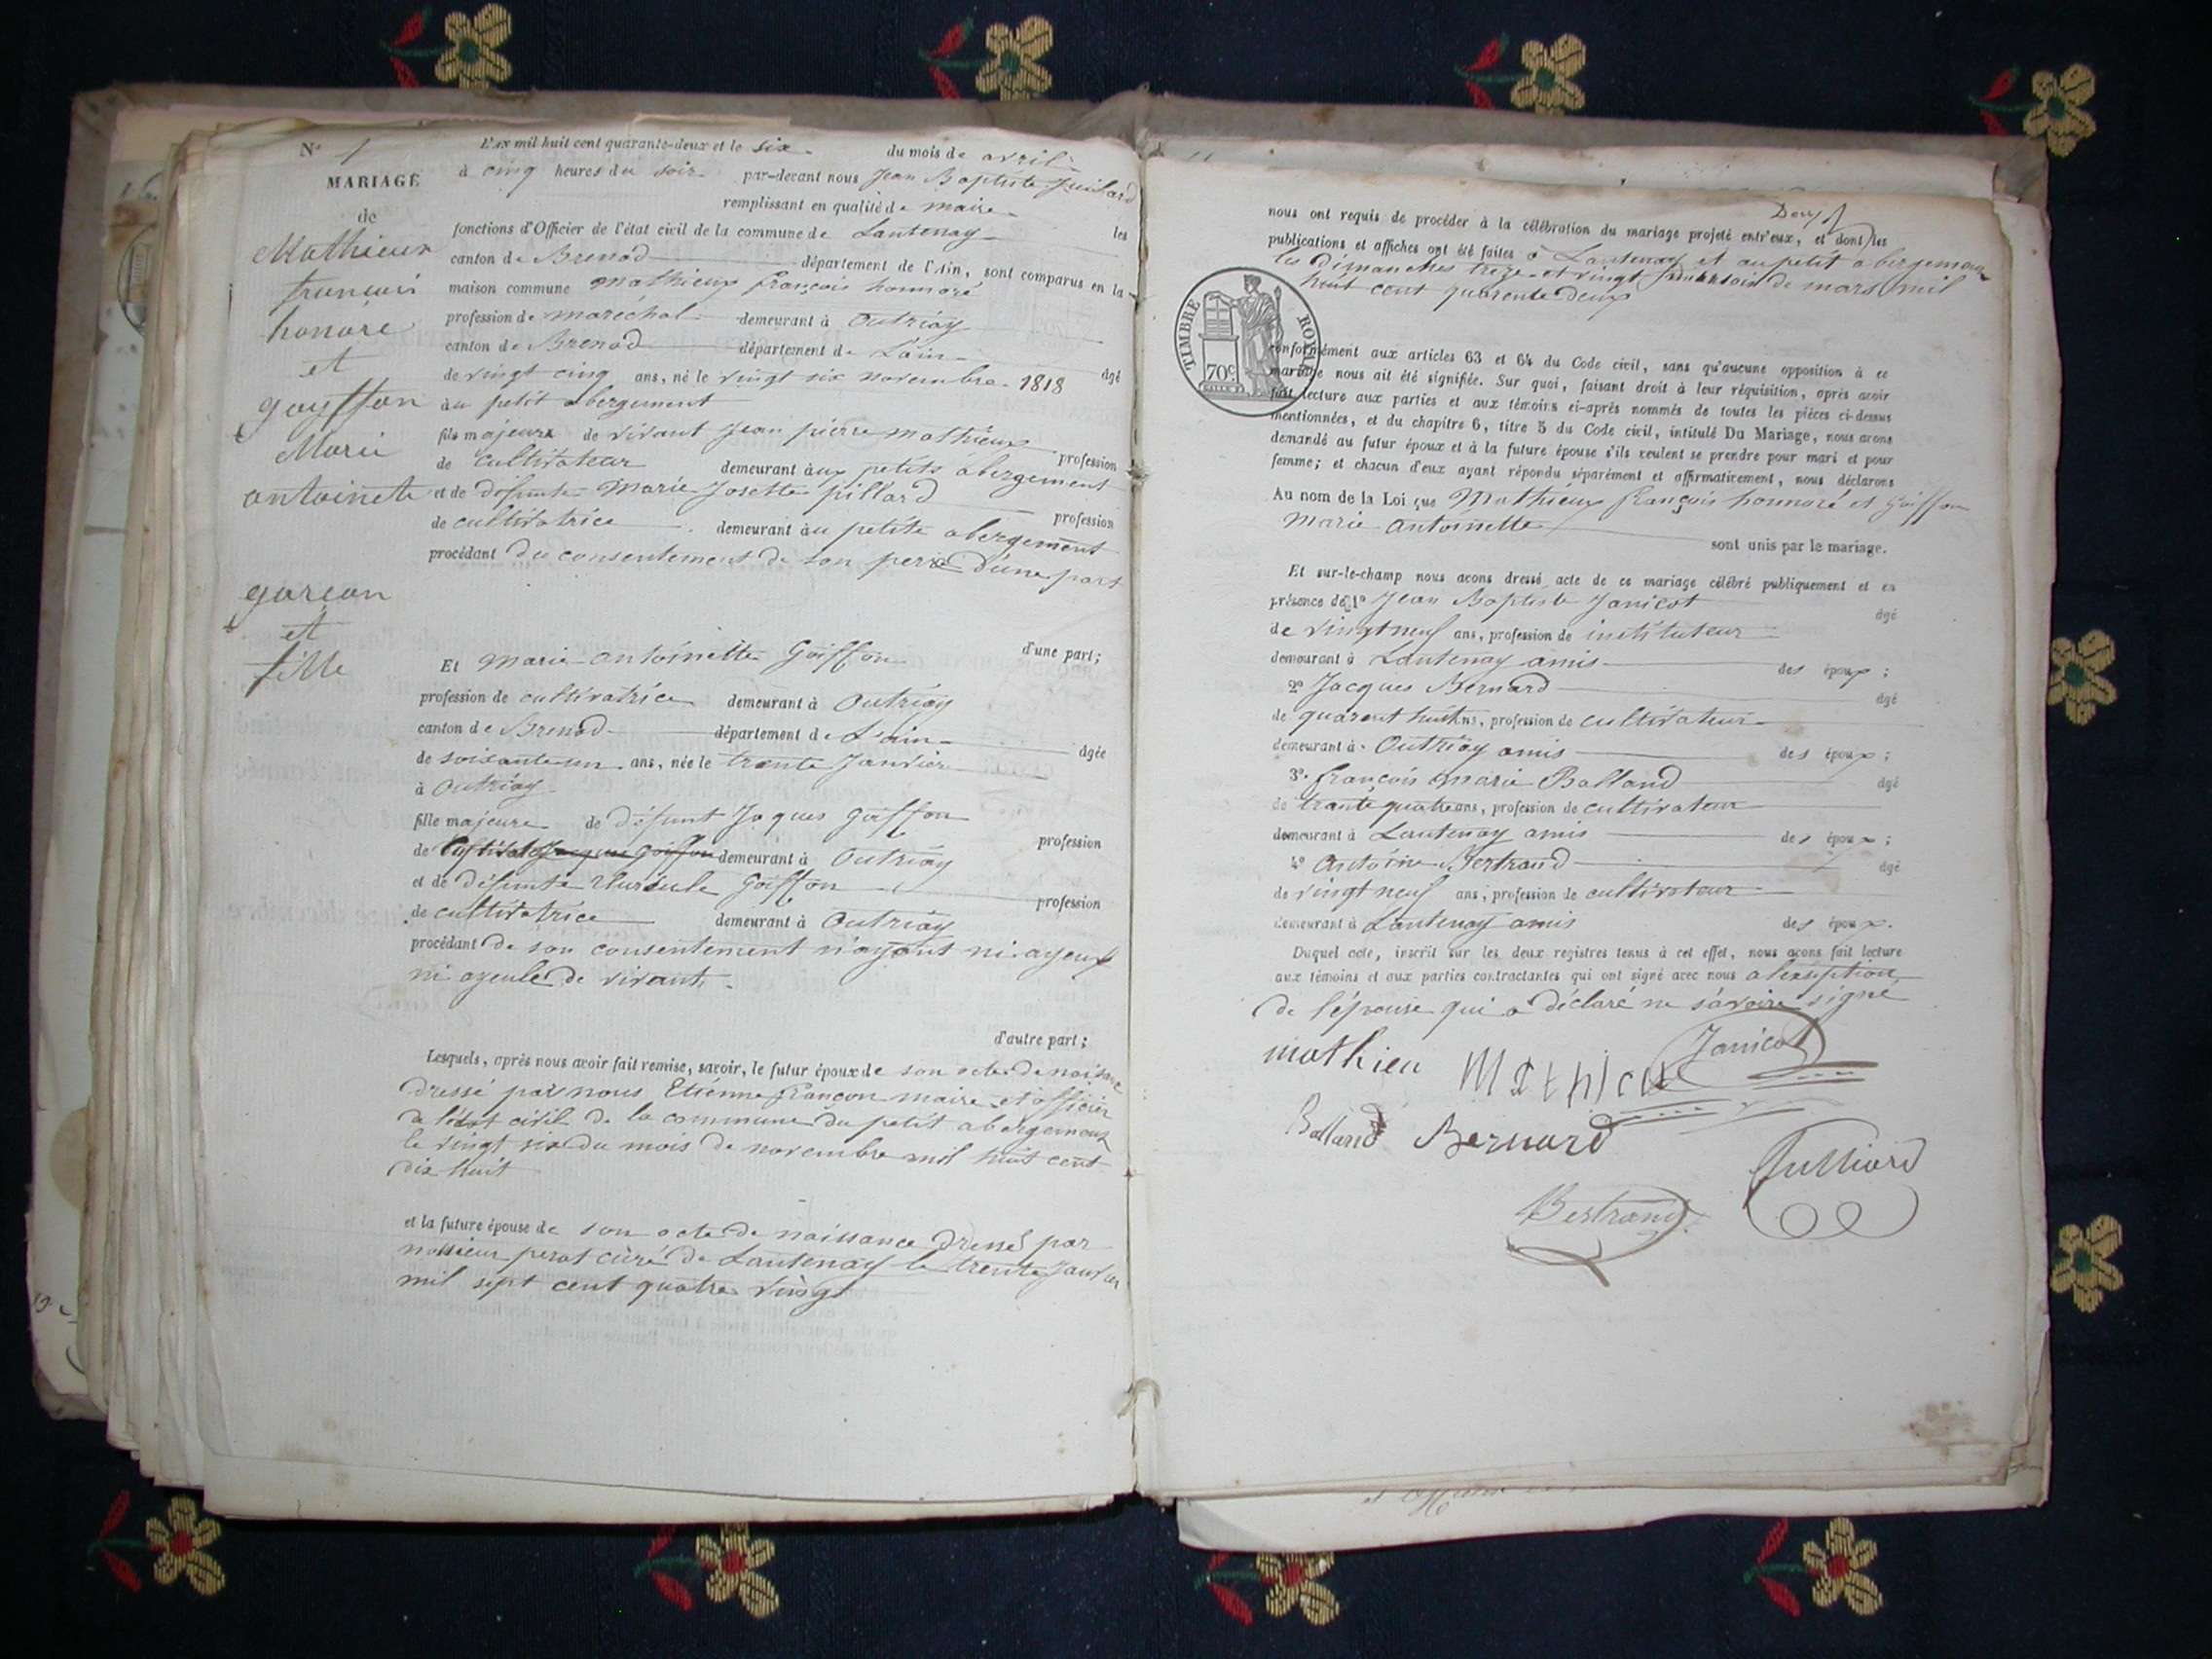 N° 1
MARIAGE
de
Mathieux
francois
honoré
et
goyffon
Marie
antoinete
garcon
et
fille
L'AN mil huit cent quarante-deux et le six du mois de avril
à cinq heures du soir par-devant nous Jean Baptiste Juilard
remplissant en qualité de maire les
fonctions d'Officier de l'état civil de la commune de Lantenay
canton de Brenod département de l'Ain, sont comparus en la
maison commune Mathieux françois honnoré
profession de maréchal demeurant à Outriay
canton de Brenod département de L'ain âgé
de vingt cinq ans, né le vingt six novembre 1818
au petit abergement
fils majeure de vivant Jean pierre mathieux profession
de cultivateur demeurant à ux petits abergement
et de défunte Marie Josette pillard profession
de cultivatrice demeurant àu petite abergement
procédant du consentement de son perre d'une part
d'une part;
Et Marie antoinette Goiffon
profession de cultivatrice demeurant à Outriay
canton de Brenod département de L'ain âgée
de soixante un ans, née le trente Janvier
à Outriay
fille majeure de défunt Jaques goiffon profession
de demeurant à Outriay
et de défunte Ursule Goiffon profession
de cultivatrice demeurant à Outriay
procédant de son consentement n'ayant ni ayeux
ni ayeule de vivant.
d'autre part;
Lesquels, après nous avoir fait remise, savoir, le futur époux de son acte de naissance
dressé par nous Etienne françon maire et officier
de l'état civil de la commune du petit abergement
le vingt six du mois de novembre mil huit cent
dix huit
et la future épouse de son acte de naissance dressé par
monsieur perat curé de Lantenay le trente Janvier
mil sept cent quatre vingt
nous ont requis de procéder à la célébration du mariage projeté entr'eux, et dont les Deux
publications et affiches ont été faites à Lantenay et au petit abergement
les Dimanches treze et vingt de mars mil
huit cent quarente deux
TIMBRE ROYAL
70c
conformément aux articles 63 et 64 du Code civil, sans qu'aucune opposition à ce
mariage nous ait été signifiée. Sur quoi, faisant droit à leur réquisition, après avoir
fait lecture aux parties et aux témoins ci-après nommés de toutes les pièces ci-dessus
mentionnées, et du chapitre 6, titre 5 du Code civil, intitulé Du Mariage, nous avons
demandé au futur époux et à la future épouse s'ils veulent se prendre pour mari et pour
femme; et chacun d'eux ayant répondu séparément et affirmativement, nous déclarons
Au nom de la Loi que Mathieux françois honnoré et Goiffon
Marie antoinette
sont unis par le mariage.
Et sur-le-champ nous avons dressé acte de ce mariage célébré publiquement et en
présence de 1° Jean Baptiste Janicot âgé
de vingt neuf ans, profession de instituteur
demeurant à Lantenay amis des époux;
2° Jacques Bernard âgé
de quarent huit ans, profession de cultivateur
demeurant à Outriay amis des époux;
3° françois Marie Balland âgé
de trante quatre ans, profession de cultivateur
demeurant à Lantenay amis des époux;
4° Antoine Bertrand âgé
de vingt neuf ans, profession de cultivateur
demeurant à Lantenay amis des époux.
Duquel acte, inscrit sur les deux registres tenus à cet effet, nous avons fait lecture
aux témoins et aux parties contractantes qui ont signé avec nous a l'exseption
de l'épouse qui a déclaré ne savoire signé
mathieu Mathieu Janicot
Balland Bernard
Julliard
Bertrand